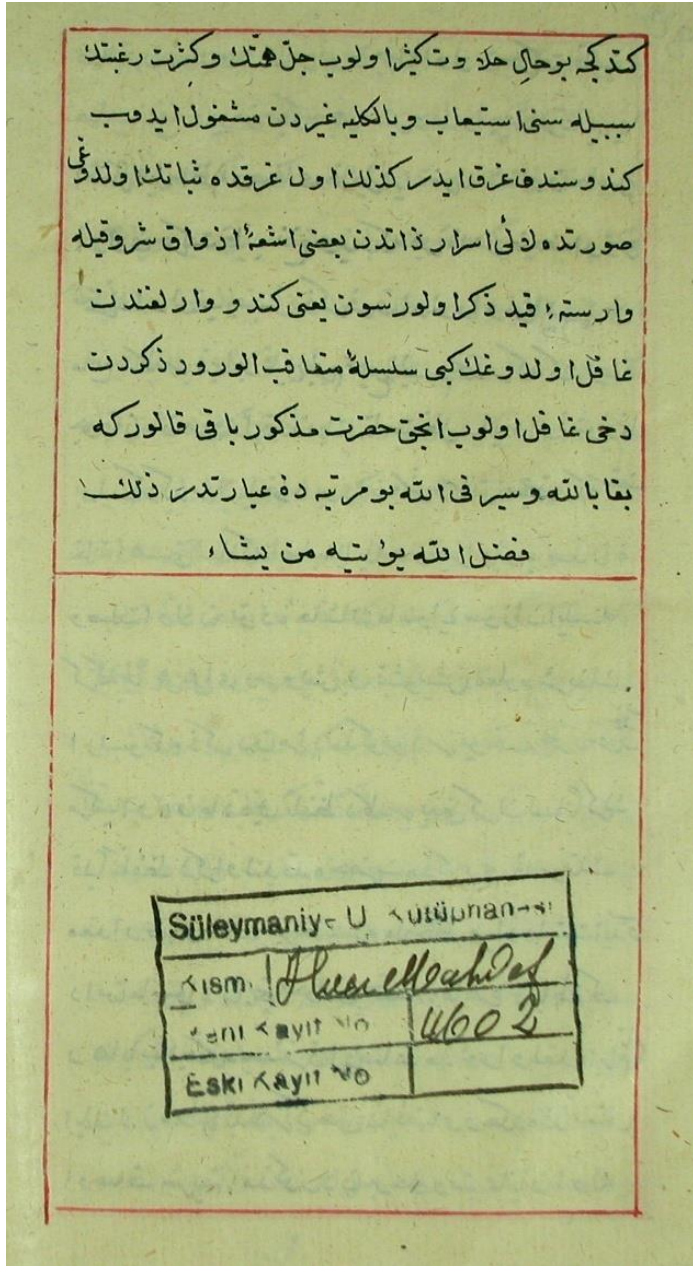 كتدكجه بو حال حلاوت كثيرا ولوب جل همتك وكثرت رغبتك
سببيله سنى استيعاب وبالكليه غيردن مشغول ايدوب
كندوسنده غرق ايدر كذلك اول غرقده ثباتك اولدوغى
صورتده لآلئ اسرار ذاتدن بعضى اشعۀ اذواق شروقيله
وارستۀ قيد ذكر اولورسون يعنى كندو وارلغندن
غافل اولدوغك كبى سلسلۀ متعاقب الورود ذكردن
دخى غافل اولوب انجق حضرت مذكور باقى قالور كه
بقا بالله وسير فى الله بو مرتبه ده عبارتدر ذلك
فضل الله يؤتيه من يشاء
Süleymaniye U Kütüphanesi
Kısmı
Yeni Kayıt No 4602
Eski Kayıt No